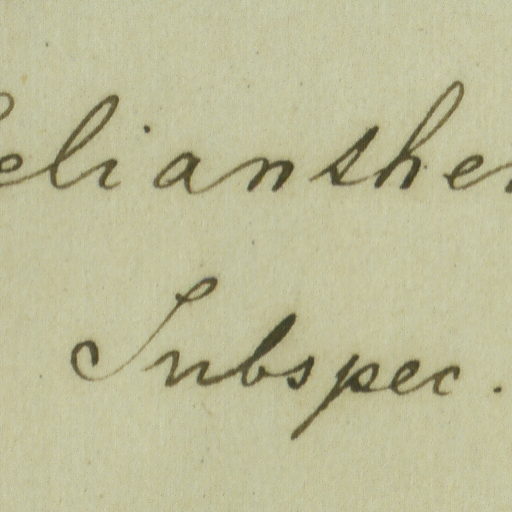 elianshe
Subspec.